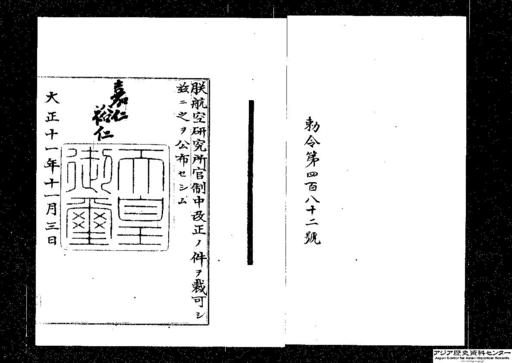 勅令第四百八十二號
朕航空研究所官制中改正ノ件ヲ裁可シ
玆ニ之ヲ公布セシム
嘉仁
裕仁
天皇
御璽
大正十一年十一月三日
アジア歴史資料センター
Japan Center for Asian Historical Records